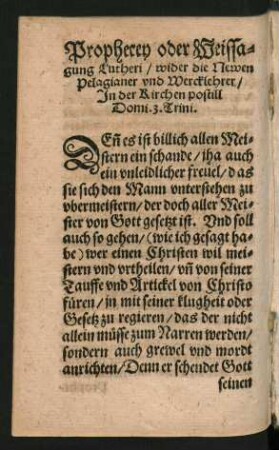 Prophecey oder Weissa-
gung Lutheri / wider die Newen
Pelagianer vnd Wercklehrer /
In der Kirchen postill
Domi. 3. Trini.
DEn̄ es ist billich allen Mei-
stern ein schande / iha auch
ein vnleidlicher freuel / das
sie sich den Mann vnterstehen zu
vbermeistern / der doch aller Mei-
ster von Gott gesetzt ist. Vnd soll
auch so gehen / (wie ich gesagt ha-
be) wer einen Christen wil mei-
stern vnd vrtheilen / vn̄ von seiner
Tauffe vnd Artickel von Christo
füren / in mit seiner klugheit oder
Gesetz zu regieren / das der nicht
allein müsse zum Narren werden /
sondern auch grewel vnd mordt
anrichten / Denn er schendet Gott
seinen